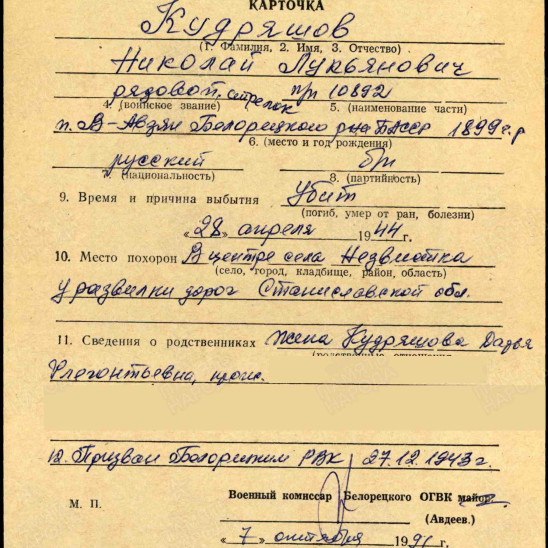 КАРТОЧКА
Кудряшов
(1. Фамилия, 2. Имя, 3. Отчество)
Николай Лукьянович
рядовой, стрелок п/п 10892
4. (воинское звание) 5. (наименование части)
п. В-Авзян Белорецкого р-на БАССР 1899 г.р
6. (место и год рождения)
русский б/п
7. (национальность) 8. (партийность)
9. Время и причина выбытия Убит
(погиб, умер от ран, болезни)
„28" апреля 1944 г.
10. Место похорон В центре села Незвиотка
(село, город, кладбище, район, область)
у развилки дорог Станиславской обл.
11. Сведения о родственниках жена Кудряшова Дарья
(родственные отношения
Флегонтьевна, прож.
12. Призван Белорецким РВК 27.12.1943 г.
М. П. Военный комиссар Белорецкого ОГВК майор
(Авдеев.)
„7" октября 1991 г.